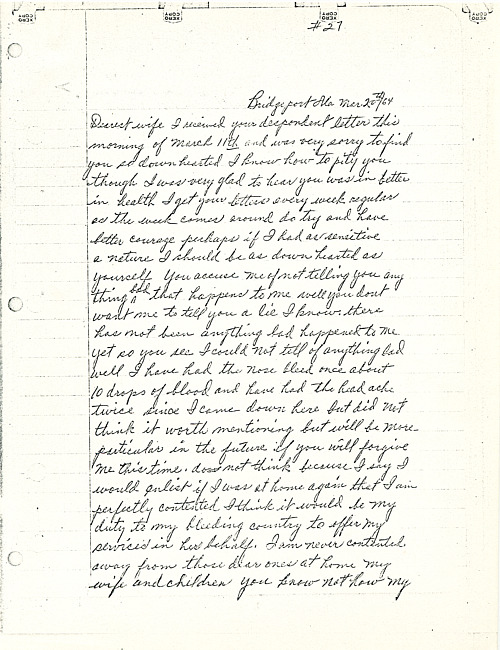 XEROX COPY
XEROX COPY
XEROX COPY
XEROX COPY
# 27
Bridgeport Ala Mar 20th/64
Dearest wife I received your despondent letter this
morning of March 11th and was very sorry to find
you so downhearted I know how to pity you
though I was very glad to hear you was in better
in health I get your letters every week regular
as the week comes around do try and have
better courage perhaps if I had as sensitive
a nature I should be as down hearted as
yourself You accuse me of not telling you any
thing bad that happens to me well you dont
want me to tell you a lie I know there
has not been anything bad happened to me
yet so you see I could not tell of anything bad
well I have had the nose bleed once about
10 drops of blood and have had the head ache
twice since I came down here but did not
think it worth mentioning but will be more
particular in the future if you will forgive
me this time. does not think because I say I
would enlist if I was at home again that I am
perfectly contented I think it would be my
duty to my bleeding country to offer my
services in her behalf. I am never contented
away from those dear ones at home my
wife and children you know not how my